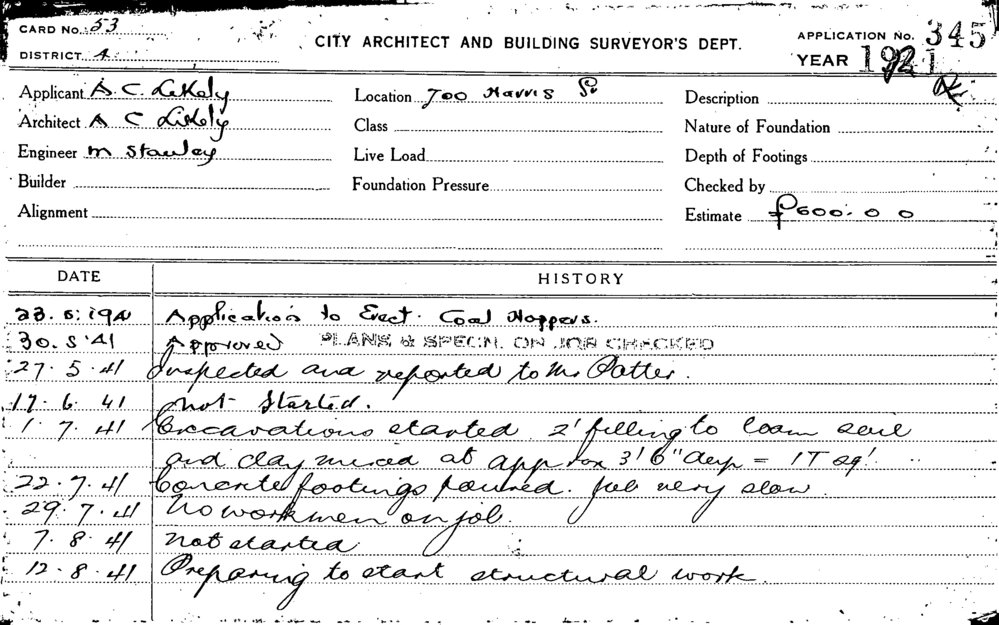 CARD No. 53
DISTRICT 4
CITY ARCHITECT AND BUILDING SURVEYOR'S DEPT.
APPLICATION No. 345
YEAR 1941
Applicant A. C. Likely
Architect A C Likely
Engineer M Stanley
Builder
Alignment
Location 700 Harris St
Class
Live Load
Foundation Pressure
Description
Nature of Foundation
Depth of Footings
Checked by
Estimate £600. 0 0
DATE HISTORY
23. 5. 1941 Application to Erect Coal Hoppers.
30. 5 '41 Approved PLANS & SPECN. ON JOB CHECKED
27. 5. 41 Inspected and reported to Mr Potter.
17. 6. 41 Not Started.
1. 7. 41 Excavations started 2' filling to loam soil
and clay mixed at approx 3'6" deep = 1 T sq'
22. 7. 41 Concrete footings poured. Job very slow
29. 7. 41 No workmen on job.
7. 8. 41 Not started
12. 8. 41 Preparing to start structural work.